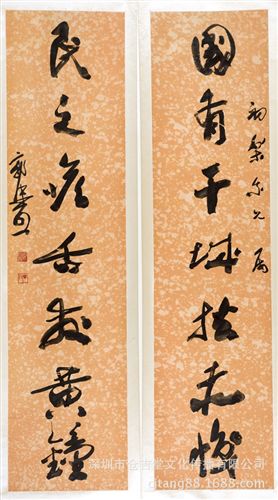 國有干城扶赤幟
初梨 兄 属
民之喉舌發黄鐘
郭
深圳市 堂文化传播有限公司
qitang88.1688.com